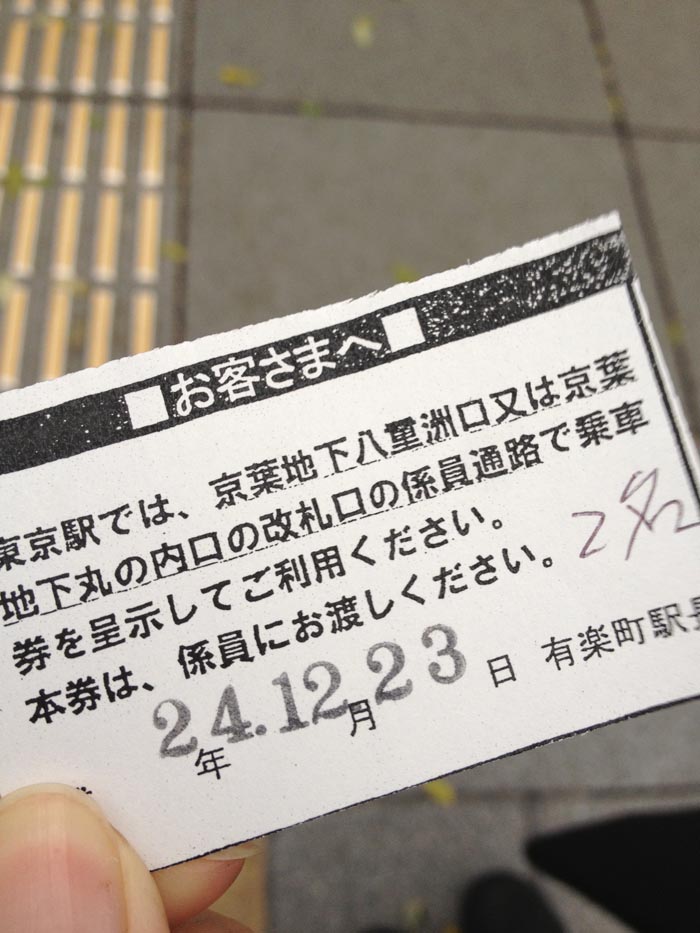 ■お客さまへ■
東京駅では、京葉地下八重洲口又は京葉
地下丸の内口の改札口の係員通路で乗車
券を呈示してご利用ください。
本券は、係員にお渡しください。
2名
24.12.23
年 月 日 有楽町駅長